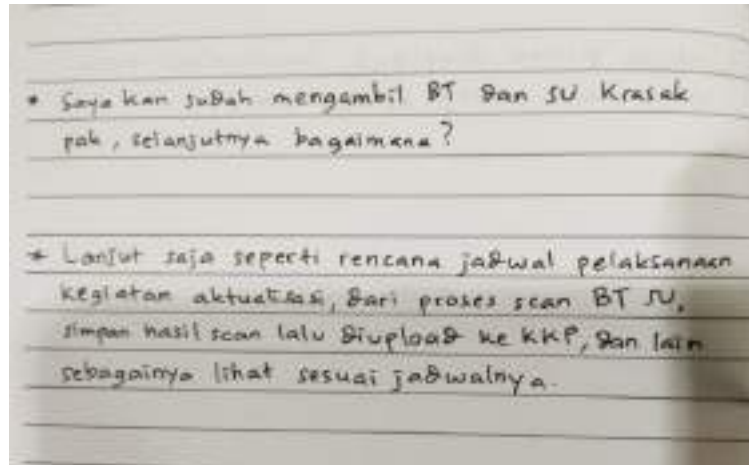 * Saya kan sudah mengambil BT dan SU Krasak
pak, selanjutnya bagaimana?
* Lanjut saja seperti rencana jadwal pelaksanaan
kegiatan aktualisasi, dari proses scan BT SU,
simpan hasil scan lalu diupload ke KKP, dan lain
sebagainya lihat sesuai jadwalnya.